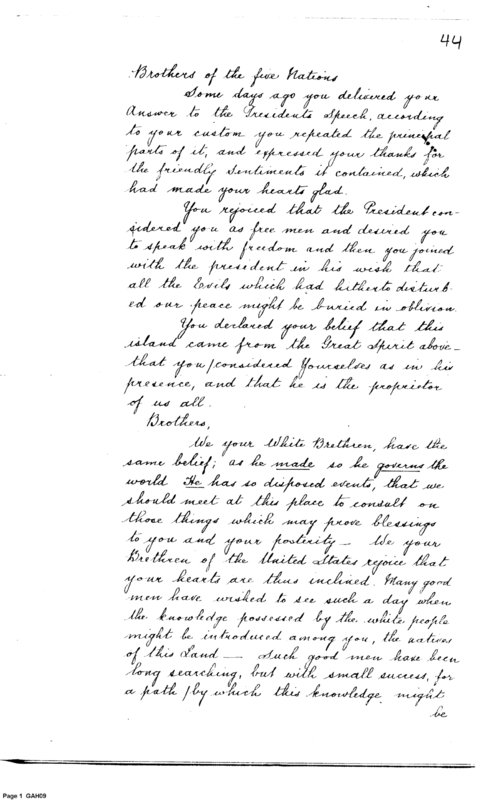 44
Brothers of the five Nations
Some days ago you delivered your
Answer to the Presidents Speech, according
to your custom you repeated the principal
parts of it, and expressed your thanks for
the friendly Sentiments it contained, which
had made your hearts glad.
You rejoiced that the President con-
sidered you as free men and desired you
to speak with freedom and then you joined
with the president in his wish that
all the Evils which had hitherto disturb-
ed our peace might be buried in oblivion.
You declared your belief that this
island came from the Great Spirit above-
that you/considered Yourselves as in his
presence, and that he is the proprietor
of us all.
Brothers,
We your White Brethren, have the
same belief; as he made so he governs the
world He has so disposed events, that we
should meet at this place to consult on
those things which may prove blessings
to you and your posterity - We your
Brethren of the United States rejoice that
your hearts are thus inclined. Many good
men have wished to see such a day when
the knowledge possessed by the white people
might be introduced among you, the natives
of this Land — Such good men have been
long searching, but with small success, for
a path / by which this knowledge might
be
Page 1 GAH09